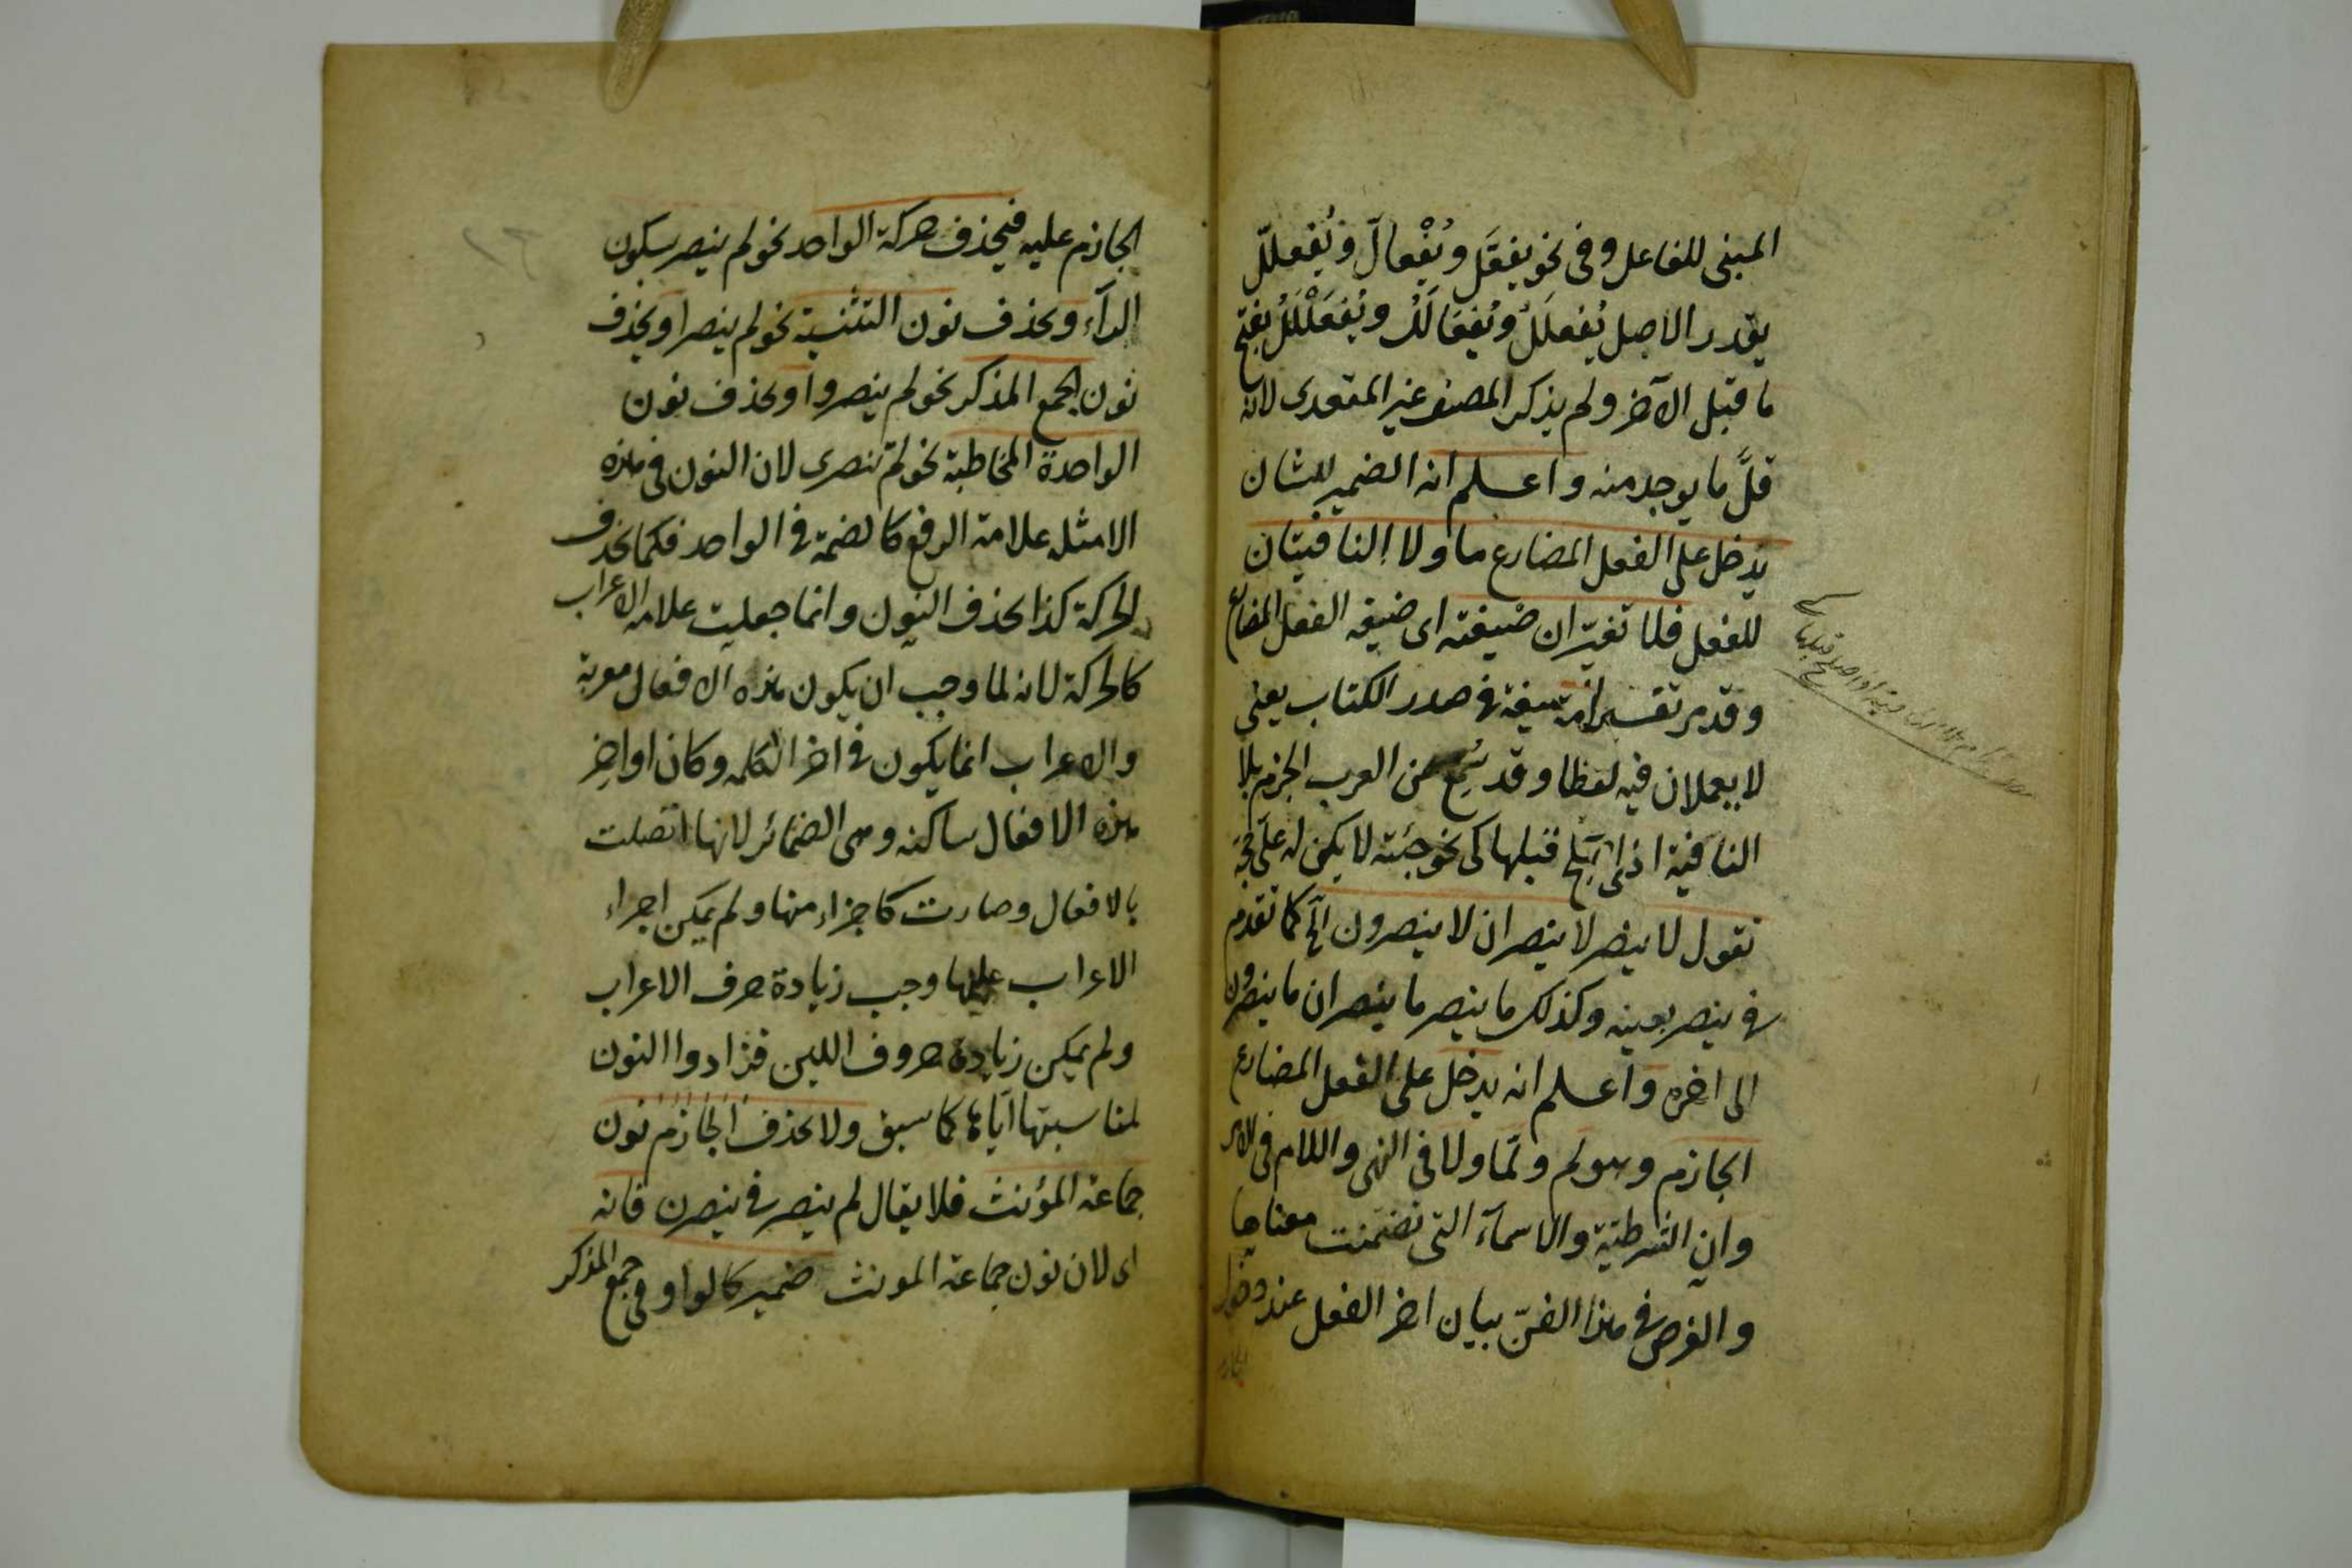 المبنى للفاعل وفى نحو يفعَل ويُفْعالّ ويُفعللّ
يقدر الاصل يُفعلَلُ ويُفعَالَلُ ويُفعَلْلَلُ بفتح
ما قبل الآخر ولم يذكر المصنف غير المتعدى لانه
قلَّ ما يوجد منه واعلم انه الضمير للشان
يدخل على الفعل المضارع ما ولا النافيتان
للفعل فلا تغيّران صيغته اى صيغه الفعل المضارع
وقد مر تفسير الصيغة فى صدر الكتاب يعنى
لا يعملان فيه لفظا وقد سُمِع من العرب الجزم بلا
النافية اذا صَلَح قبلها كى نحو جئته لا يكن له علَىّ حجة
تقول لا ينصر لا ينصران لا ينصرون الخ كما تقدم
فى ينصر بعينه وكذلك ما ينصر ما ينصران ما ينصرون
الى اخره واعلم انه يدخل على الفعل المضارع
الجازم وهو لم ولمّا ولا فى النهى واللام فى الامر
وانِ الشرطيّة والاسمآء التى تضمّنت معناها
والغرض فى هذا الفنّ بيان اخر الفعل عند دخول
الجازم عليه فيحذف حركة الواحد نحو لم ينصر بسكون
الرآء ويحذف نون التثنية نحو لم ينصرا ويحذف
نون الجمع المذكر نحو لم ينصروا ويحذف نون
الواحدة المخاطبة نحو لم تنصرى لان النون فى هذه
الامثله علامة الرفع كالضمة فى الواحد فكما تحذف
الحركة كذا يحذف النون وانما جعلت علامه الاعراب
كالحركة لانه لما وجب ان يكون هذه الافعال معربة
والاعراب انما يكون فى اخر الكلمه وكان اواخِر
هذه الافعال ساكنه وهى الضمائر لانها اتصلت
بالافعال وصارت كاجزاء منها ولم يمكن اجراء
الاعراب عليها وجب زيادة حرف الاعراب
ولم يمكن زيادة حروف اللين فزادوا النون
لمناسبتها ايّاها كما سبق ولا يحذف الجازم نون
جماعة المؤنث فلا يقال لم ينصر فى ينصرن فانه
اى لان نون جماعة المونث ضمير كالواو فى جمع المذكر